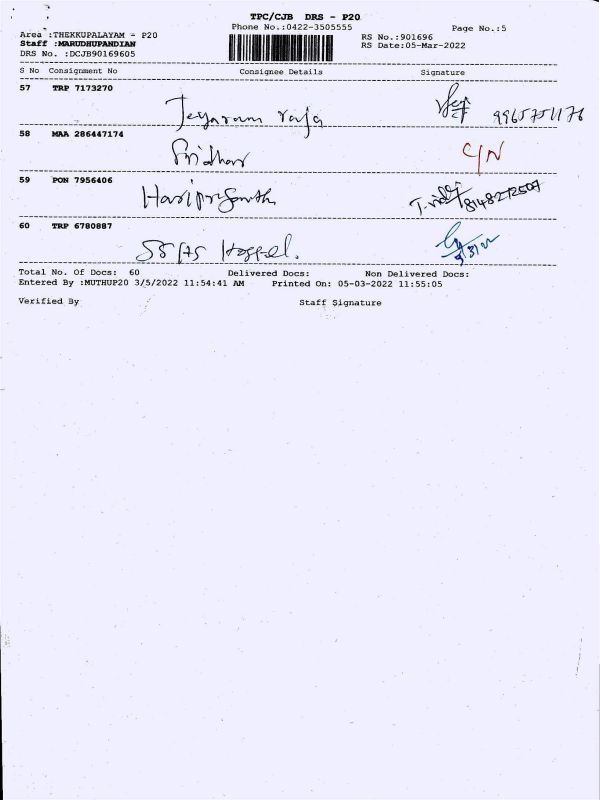 TPC/CJB DRS - P20
Phone No.:0422-3505555
Page No.:5
Area :THEKKUPALAYAM - P20
Staff :MARUDHUPANDIAN
DRS No. :DCJB90169605
RS No.:901696
RS Date:05-Mar-2022
S No Consignment No Consignee Details Signature
57 TRP 7173270
Jeyaram raja 9965751176
58 MAA 286447174
Sridhar C/N
59 PON 7956406
Hariprasanth 8148272507
60 TRP 6780887
Total No. Of Docs: 60 Delivered Docs: Non Delivered Docs:
Entered By :MUTHUP20 3/5/2022 11:54:41 AM Printed On: 05-03-2022 11:55:05
Verified By Staff Signature